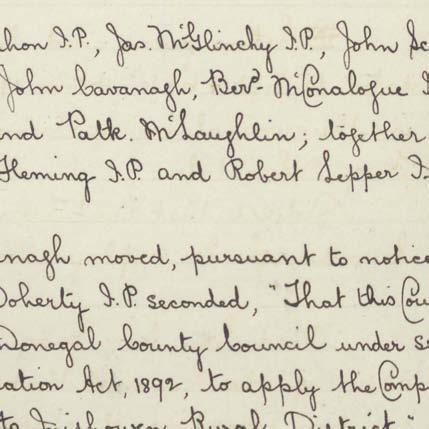 hon J.P., Jas. McGlinchy J.P., John Sc
John Cavanagh, Berd. McConalogue J
and Patk. McLaughlin; together
Fleming J.P. and Robert Lepper J.
nagh moved, pursuant to notice
Doherty J.P. seconded, "That this Cou
Donegal County Council under s
ation Act, 1892, to apply the Comp
to Inishowen Rural District."